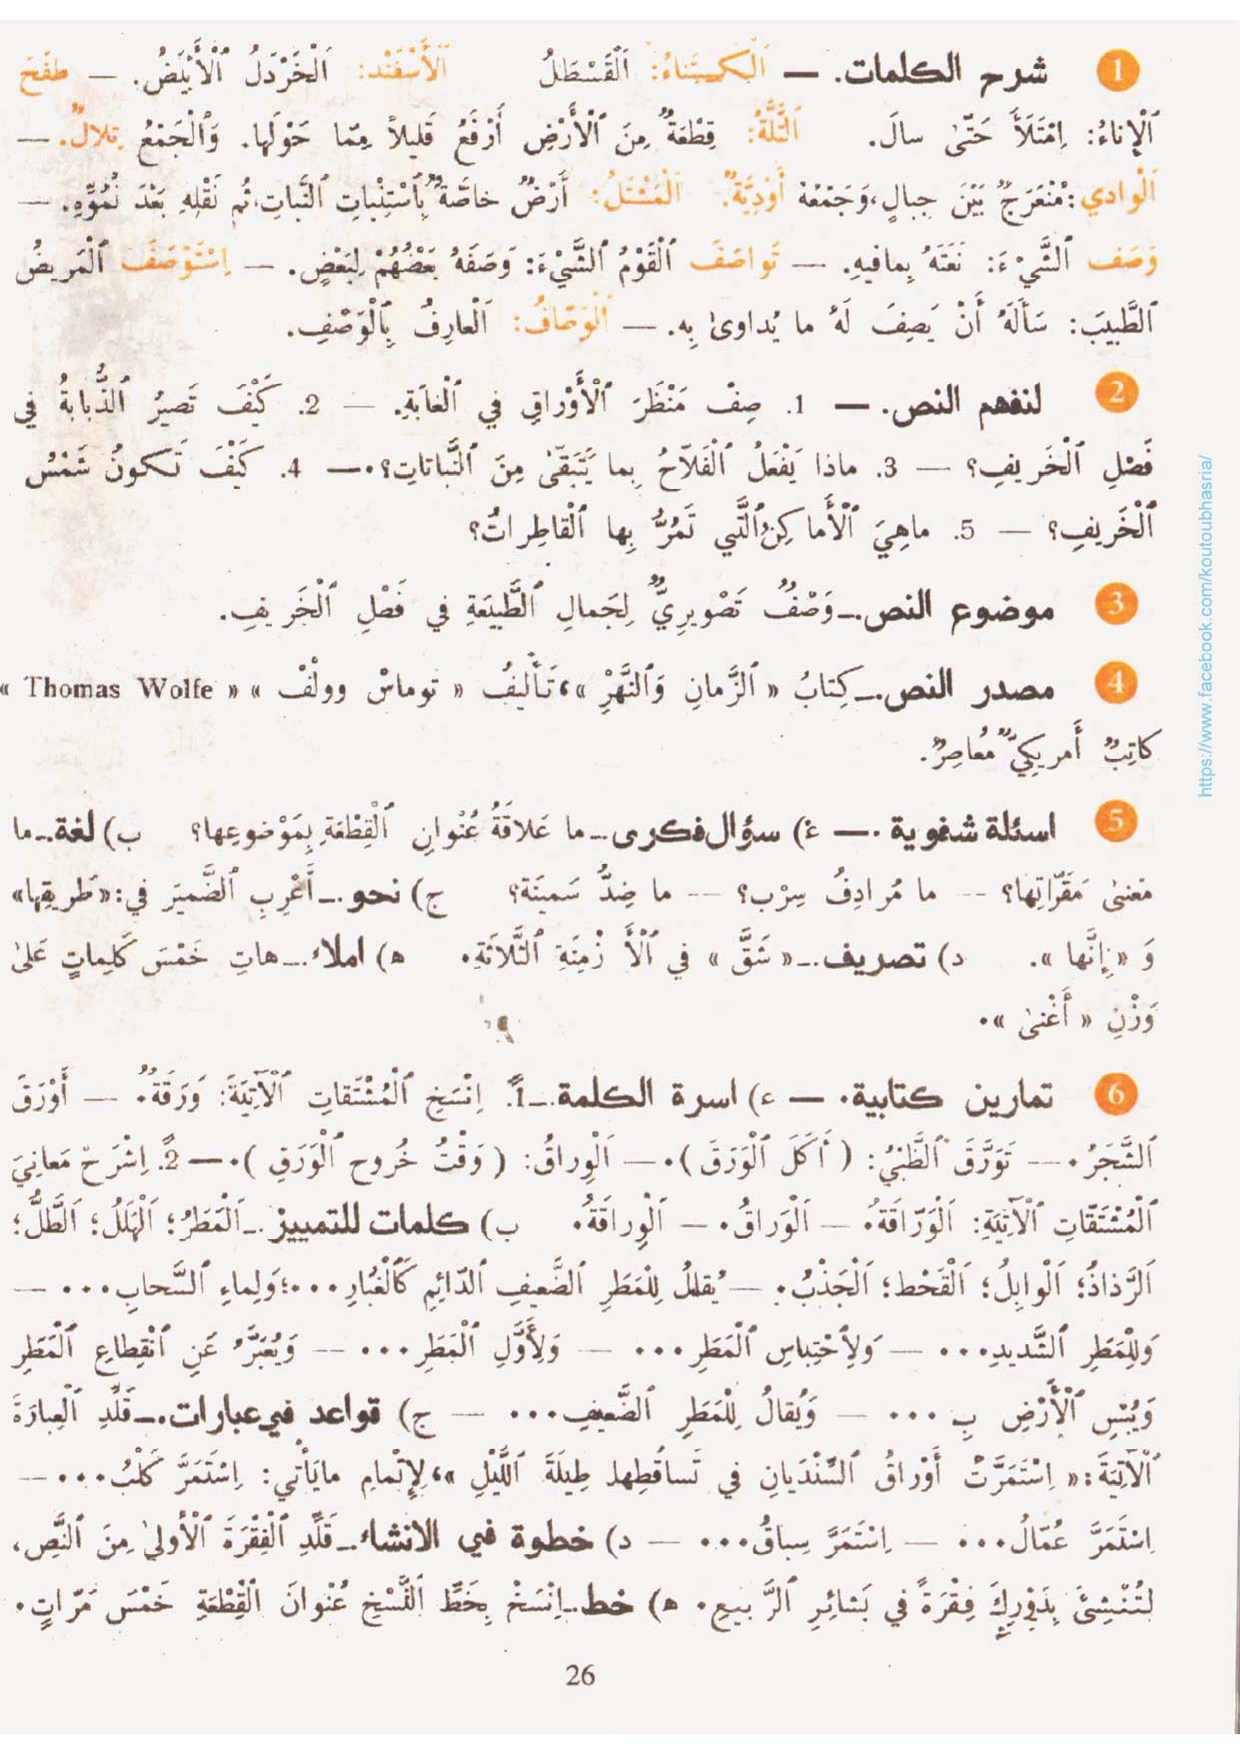 1 شرح الكلمات. — اَلْكَسْتَناءُ: اَلْقَسْطَلُ اَلْأَسْفَنْد: اَلْخَرْدَلُ ٱلْأَبْيَضُ. — طَفَحَ
ٱلْإِناءُ: اِمْتَلَأَ حَتّىٰ سالَ. اَلتَّلَّةُ: قِطْعَةٌ مِنَ ٱلْأَرْضِ أَرْفَعُ قَليلاً مِمّا حَوْلَها. وَٱلْجَمْعُ تِلالٌ. —
اَلْوادي: مُنْعَرَجٌ بَيْنَ جِبالٍ، وَجَمْعُهُ أَوْدِيَةٌ. اَلْمَشْتَلُ: أَرْضٌ خاصَّةٌ بِٱسْتِنْباتِ ٱلنَّباتِ، ثُم نَقْلِهِ بَعْدَ نُمُوِّهِ. —
وَصَف ٱلشَّيْءَ: نَعَتَهُ بِمافيهِ. — تَواصَفَ ٱلْقَوْمُ ٱلشَّيْءَ: وَصَفَهُ بَعْضُهُمْ لِبَعْضٍ. — اِسْتَوْصَفَ ٱلْمَريضُ
ٱلطَّبيبَ: سَأَلَهُ أَنْ يَصِفَ لَهُ ما يُداوىٰ بِهِ. — اَلْوَصّافُ: اَلْعارِفُ بِٱلْوَصْفِ.
2 لنفهم النص. — 1. صِفْ مَنْظَرَ ٱلْأَوْراقِ في ٱلْغابَةِ. — 2. كَيْفَ تَصيرُ ٱلذُّبابَةُ في
فَصْلِ ٱلْخَريفِ؟ — 3. ماذا يَفْعَلُ ٱلْفَلاّحُ بِما يَتَبَقّىٰ مِنَ ٱلنَّباتاتِ؟ — 4. كَيْفَ تَكونُ شَمْسُ
ٱلْخَريفِ؟ — 5. ماهِيَ ٱلْأَماكِنُ ٱلَّتي تَمُرُّ بِها ٱلْقاطِراتُ؟
3 موضوع النص. — وَصْفٌ تَصْويرِيٌّ لِجَمالِ ٱلطَّبيعَةِ في فَصْلِ ٱلْخَريفِ.
4 مصدر النص. — كِتابُ « ٱلزَّمانِ وَٱلنَّهْرِ »، تَأليفُ « توماسْ وولْفْ » « Thomas Wolfe »
كاتِبٌ أَمريكِيٌّ مُعاصِرٌ.
5 اسئلة شفوية. — ء) سؤال فكرى — ما عَلاقَةُ عُنْوانِ ٱلْقِطْعَةِ بِمَوْضوعِها؟ ب) لغة — ما
مَعْنىٰ مَقَرّاتِها؟ — ما مُرادِفُ سِرْب؟ — ما ضِدُّ سَمينَة؟ ج) نحو — أَعْرِبِ ٱلضَّميرَ في: « طَريقِها»
وَ « إِنَّها ». د) تصريف. — « شَقَّ » في ٱلْأَزْمِنَةِ ٱلثَّلاثَةِ. ه) املاء. — هاتِ خَمْسَ كَلِماتٍ عَلىٰ
وَزْنِ « أَغْنىٰ ».
6 تمارين كتابية. — ء) اسرة الكلمة. — 1ً. اِنْسَخِ ٱلْمُشْتَقاتِ ٱلْآتِيَةَ: وَرَقَةٌ. — أَوْرَقَ
ٱلشَّجَرُ. — تَوَرَّقَ ٱلظَّبْيُ: ( أَكَلَ ٱلْوَرَقَ ). — اَلْوِراقُ: ( وَقْتُ خُروج ٱلْوَرَقِ ). — 2ً. اِشْرَحْ مَعانِيَ
ٱلْمُشْتَقّاتِ ٱلْآتِيَةِ: اَلْوَرّاقَةُ. — اَلْوَراقُ. — اَلْوِراقَةُ. ب) كلمات للتمييز. — اَلْمَطَرُ؛ اَلْهَلَلُ؛ اَلطَّلُّ؛
اَلرَّذاذُ؛ اَلْوابِلُ؛ اَلْقَحْط؛ اَلْجَذْبُ. — يُقالُ لِلْمَطَرِ ٱلضَّعيفِ ٱلدّائِمِ كَٱلْغُبارِ...؛ وَلِماءِ ٱلسَّحابِ... —
وَلِلْمَطَرِ ٱلشَّديدِ... — وَلِٱحْتِباسِ ٱلْمَطَرِ... — وَلِأَوَّلِ ٱلْمَطَرِ... — وَيُعَبَّرُ عَنِ ٱنْقِطاعِ ٱلْمَطَرِ
وَيُبْسِ ٱلْأَرْضِ بِ ... — وَيُقالُ لِلْمَطَرِ ٱلضَّعيفِ... — ج) قواعد في عبارات. — قَلِّدِ ٱلْعِبارَةَ
ٱلْآتِيَةَ: « اِسْتَمَرَّتْ أَوْراقُ ٱلسِّنْدَيانِ في تَساقُطِها طيلَةَ ٱللَّيْلِ »، لِإِتْمامِ مايَأْتي: اِسْتَمَرَّ كَلْبٌ... —
اِسْتَمَرَّ عُمّالٌ... — اِسْتَمَرَّ سِباقُ... — د) خطوة في الانشاء — قَلِّدِ ٱلْفِقْرَةَ ٱلْأُولىٰ مِنَ ٱلنَّصِ،
لِتُنْشِئَ بِدَوْرِكَ فِقْرَةً في بَشائِرِ ٱلرَّبيعِ. ه) خط — اِنْسَخْ بِخَطِّ ٱلنَّسْخِ عُنْوانَ ٱلْقِطْعَةِ خَمْسَ مَرّاتٍ.
26
https://www.facebook.com/koutoubhasria/